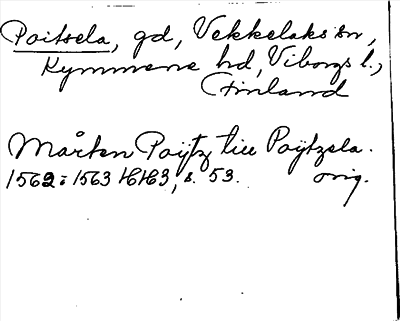 Poitsela, gd, Vekkelaks sn,
Kymmene hd, Viborgs l.,
Finland
Mårten Poÿtz till Poÿtzela.
1562-1563 HH3, s. 53. orig.